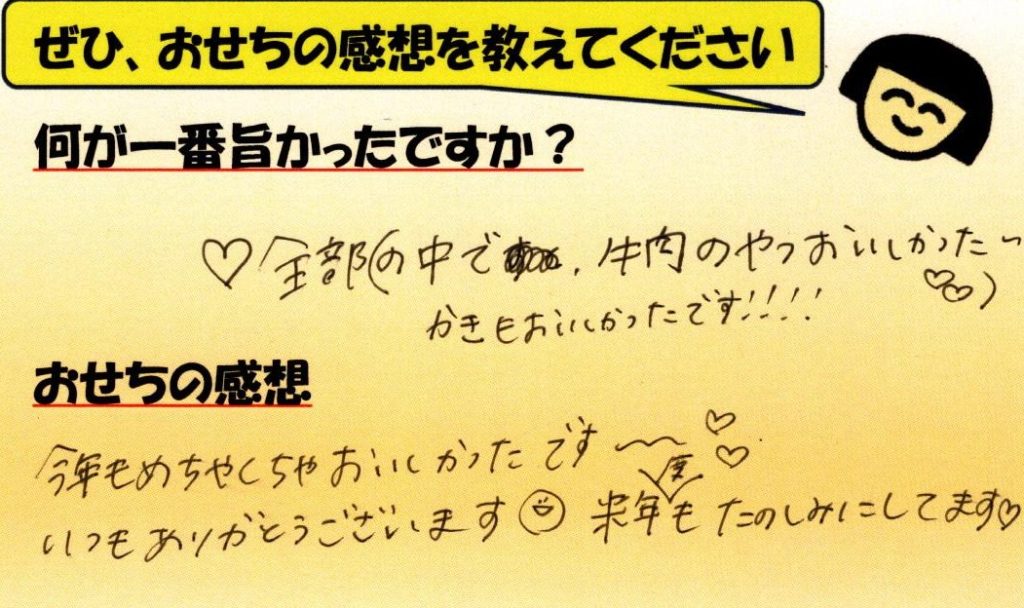 ぜひ、おせちの感想を教えてください
何が一番旨かったですか？
♡全部(の中で、牛肉のやつおいしかった〜♡♡)
かきもおいしかったです!!!!
おせちの感想
今年もめちゃくちゃおいしかったです〜♡♡
いつもありがとうございます☺ 来年度もたのしみにしてます♡